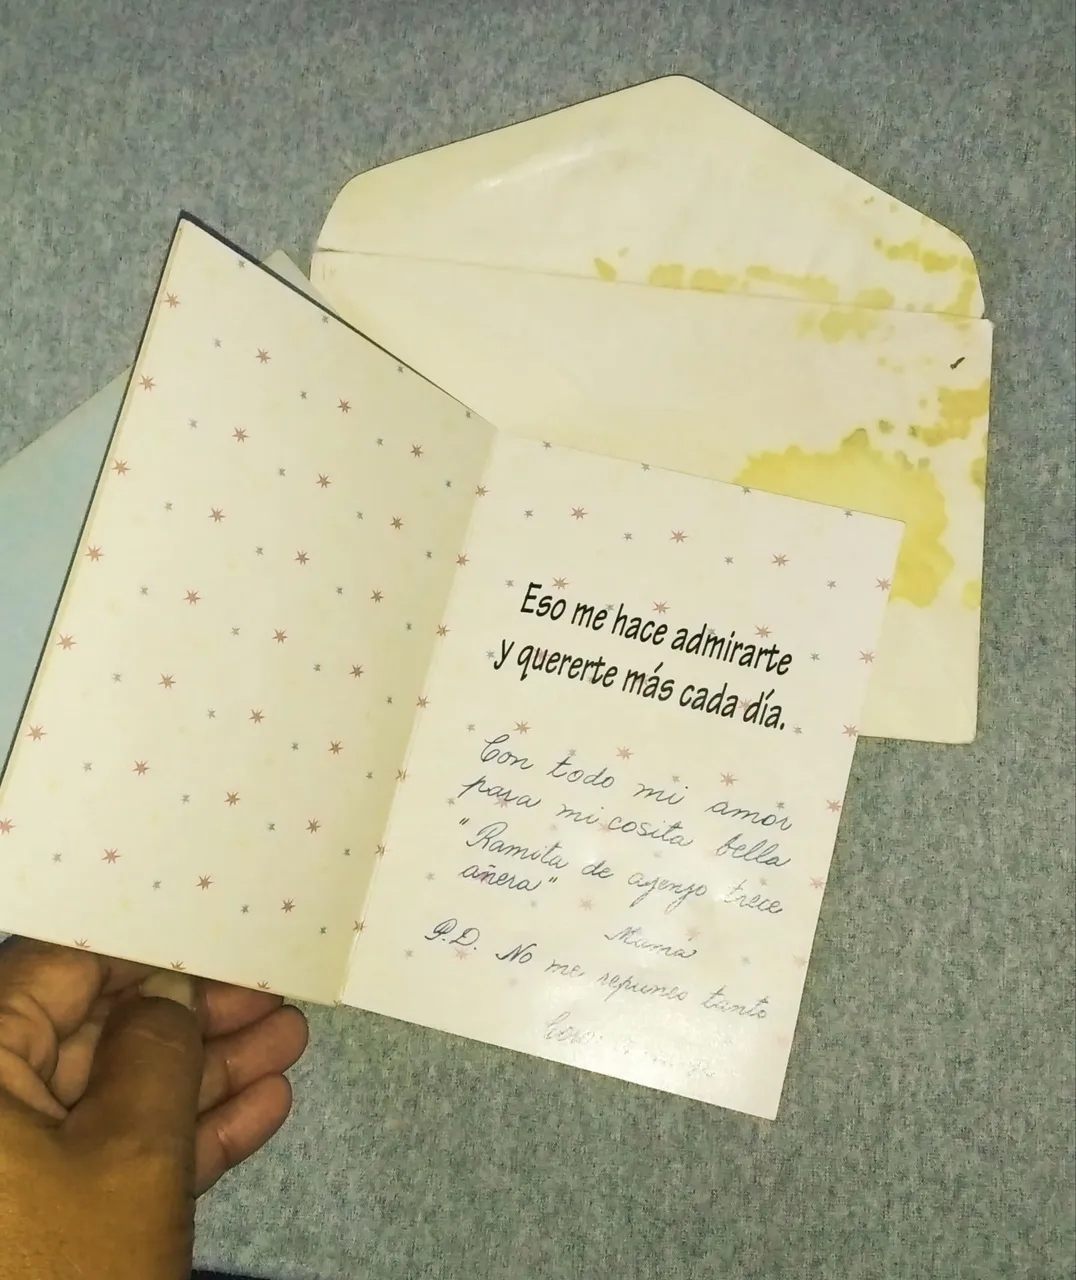 Eso me hace admirarte
y quererte más cada día.
Con todo mi amor
para mi cosita bella
"Ramita de ajenjo trece
añera"
Mamá
P.D. No me repuneo tanto